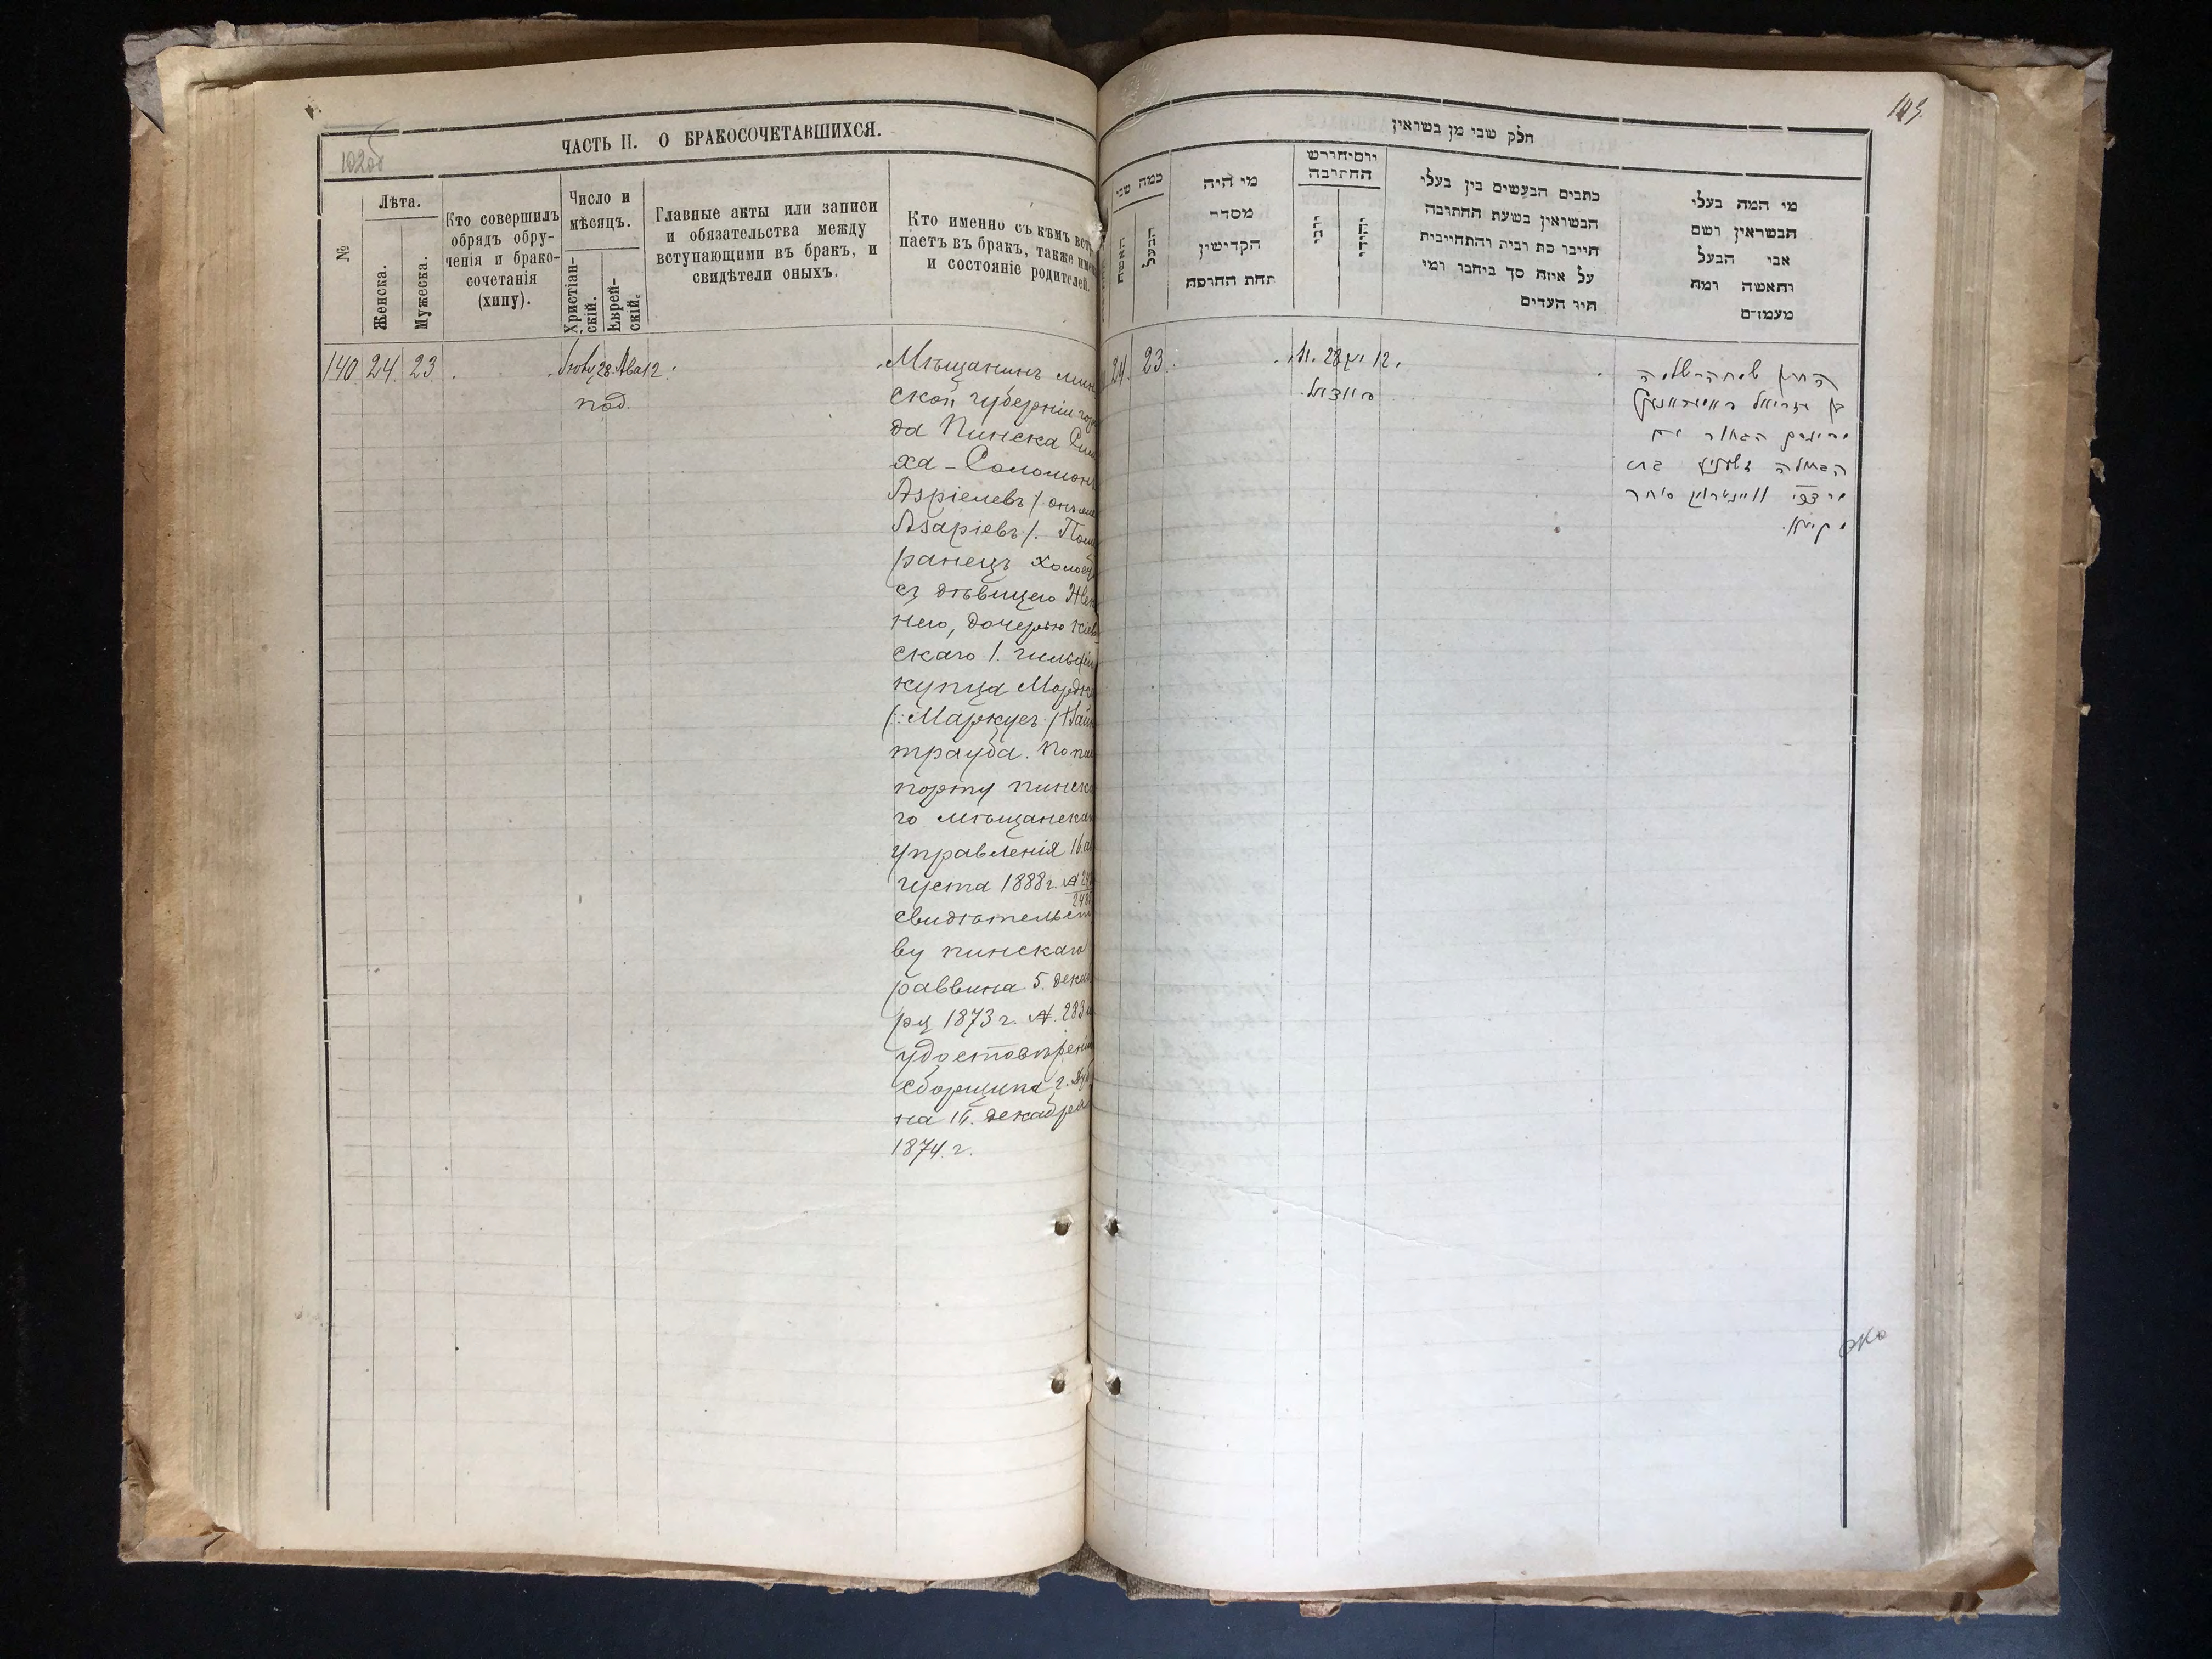 102об
ЧАСТЬ II. О БРАКОСОЧЕТАВШИХСЯ.
№
Лѣта.
Женска.
Мужеска.
Кто совершилъ
обрядъ обру-
ченія и брако-
сочетанія
(хипу).
Число и
мѣсяцъ.
Христіан-
скій.
Еврей-
скій.
Главные акты или записи
и обязательства между
вступающими въ бракъ, и
свидѣтели оныхъ.
Кто именно съ кѣмъ вст
паетъ въ бракъ, также имен
и состояніе родителей.
140 24. 23
28. Ава 12.
под.
Мѣщанинъ мин
ской губерніи горо
да Пинска Сим
ха - Соломонъ
Азріелевъ / онъ же
Азаріевъ /. Пом
ранецъ холост
съ дѣвицею Жен
нею, дочерью кіев
скаго 1. гильдіи
купца Мордко
/: Маркусъ / Вайн
трауба. По пас
порту пинска
го мѣщанска
управленія 16 ав
густа 1888 г. №
свидѣтельст
ву пинскаго
раввина 5. декаб
ря 1873 г. №. 283 и
удостовѣренію
сборщика г.
на 16. декабря
1874. г.
103
חלק שני מן נשואין
כמה שני
האשה
הבעל
מי היה
מסדר
הקדישין
תחת החופה
יום וחודש
החתונה
כתבים הנעשים בין בעלי
הנשואין בשעת החתונה
חייבו כת ובית והתחייבות
על איזה סך ביחבר ומי
היו העדים
מי המה בעלי
הנשואין ושם
אבי הבעל
והאשה ומה
מעמדם
24. 23. 28 12.
החתן שמחה שלמה
בן עזריאל
מפינסק הבחור עם
הבתולה בת
מ' צבי וויינטרויב סוחר